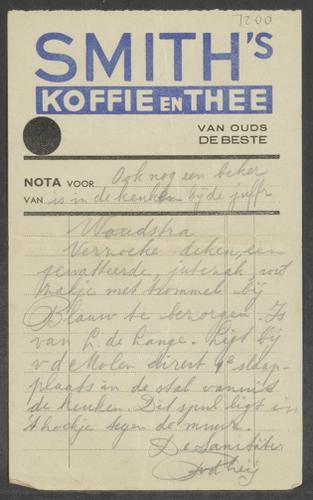 7200
SMITH's
KOFFIE EN THEE
VAN OUDS
DE BESTE
NOTA VOOR Ook nog een beker
VAN is in de keuken bij de juffr
Woudstra
Verzoeke deken, een
gewatteerde, jutezak, wit
zakje met trommel bij
Blauw te bezorgen. Is
van L. de Lange. Ligt bij
v d Molen direct 1e slaap-
plaats in de stal vanuit
de keuken. Dit spul ligt in
't hoekje tegen de muur.
De Sanitäter